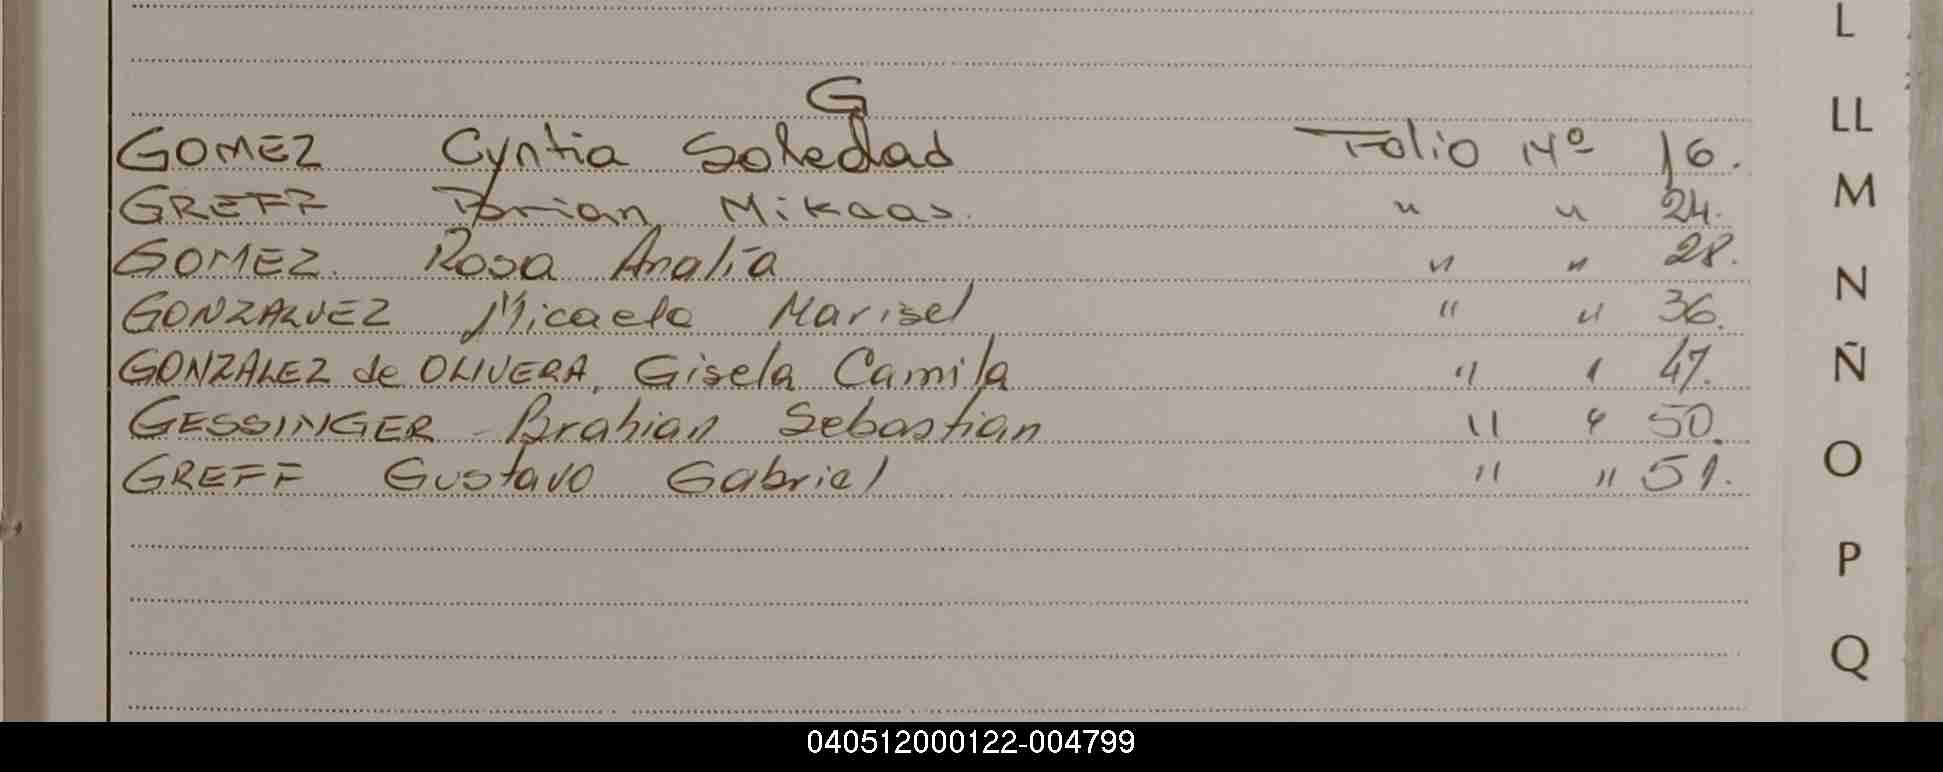 G
GOMEZ Cyntia Soledad Folio Nº 16.
GREFF Brian Mikaas. " " 24.
GOMEZ. Rosa Analía " " 28.
GONZALVEZ Micaela Marisel " " 36.
GONZALEZ de OLIVERA, Gisela Camila " " 47.
GESSINGER - Brahian Sebastian " " 50.
GREFF Gustavo Gabriel " " 51.
L
LL
M
N
Ñ
O
P
Q
040512000122-004799